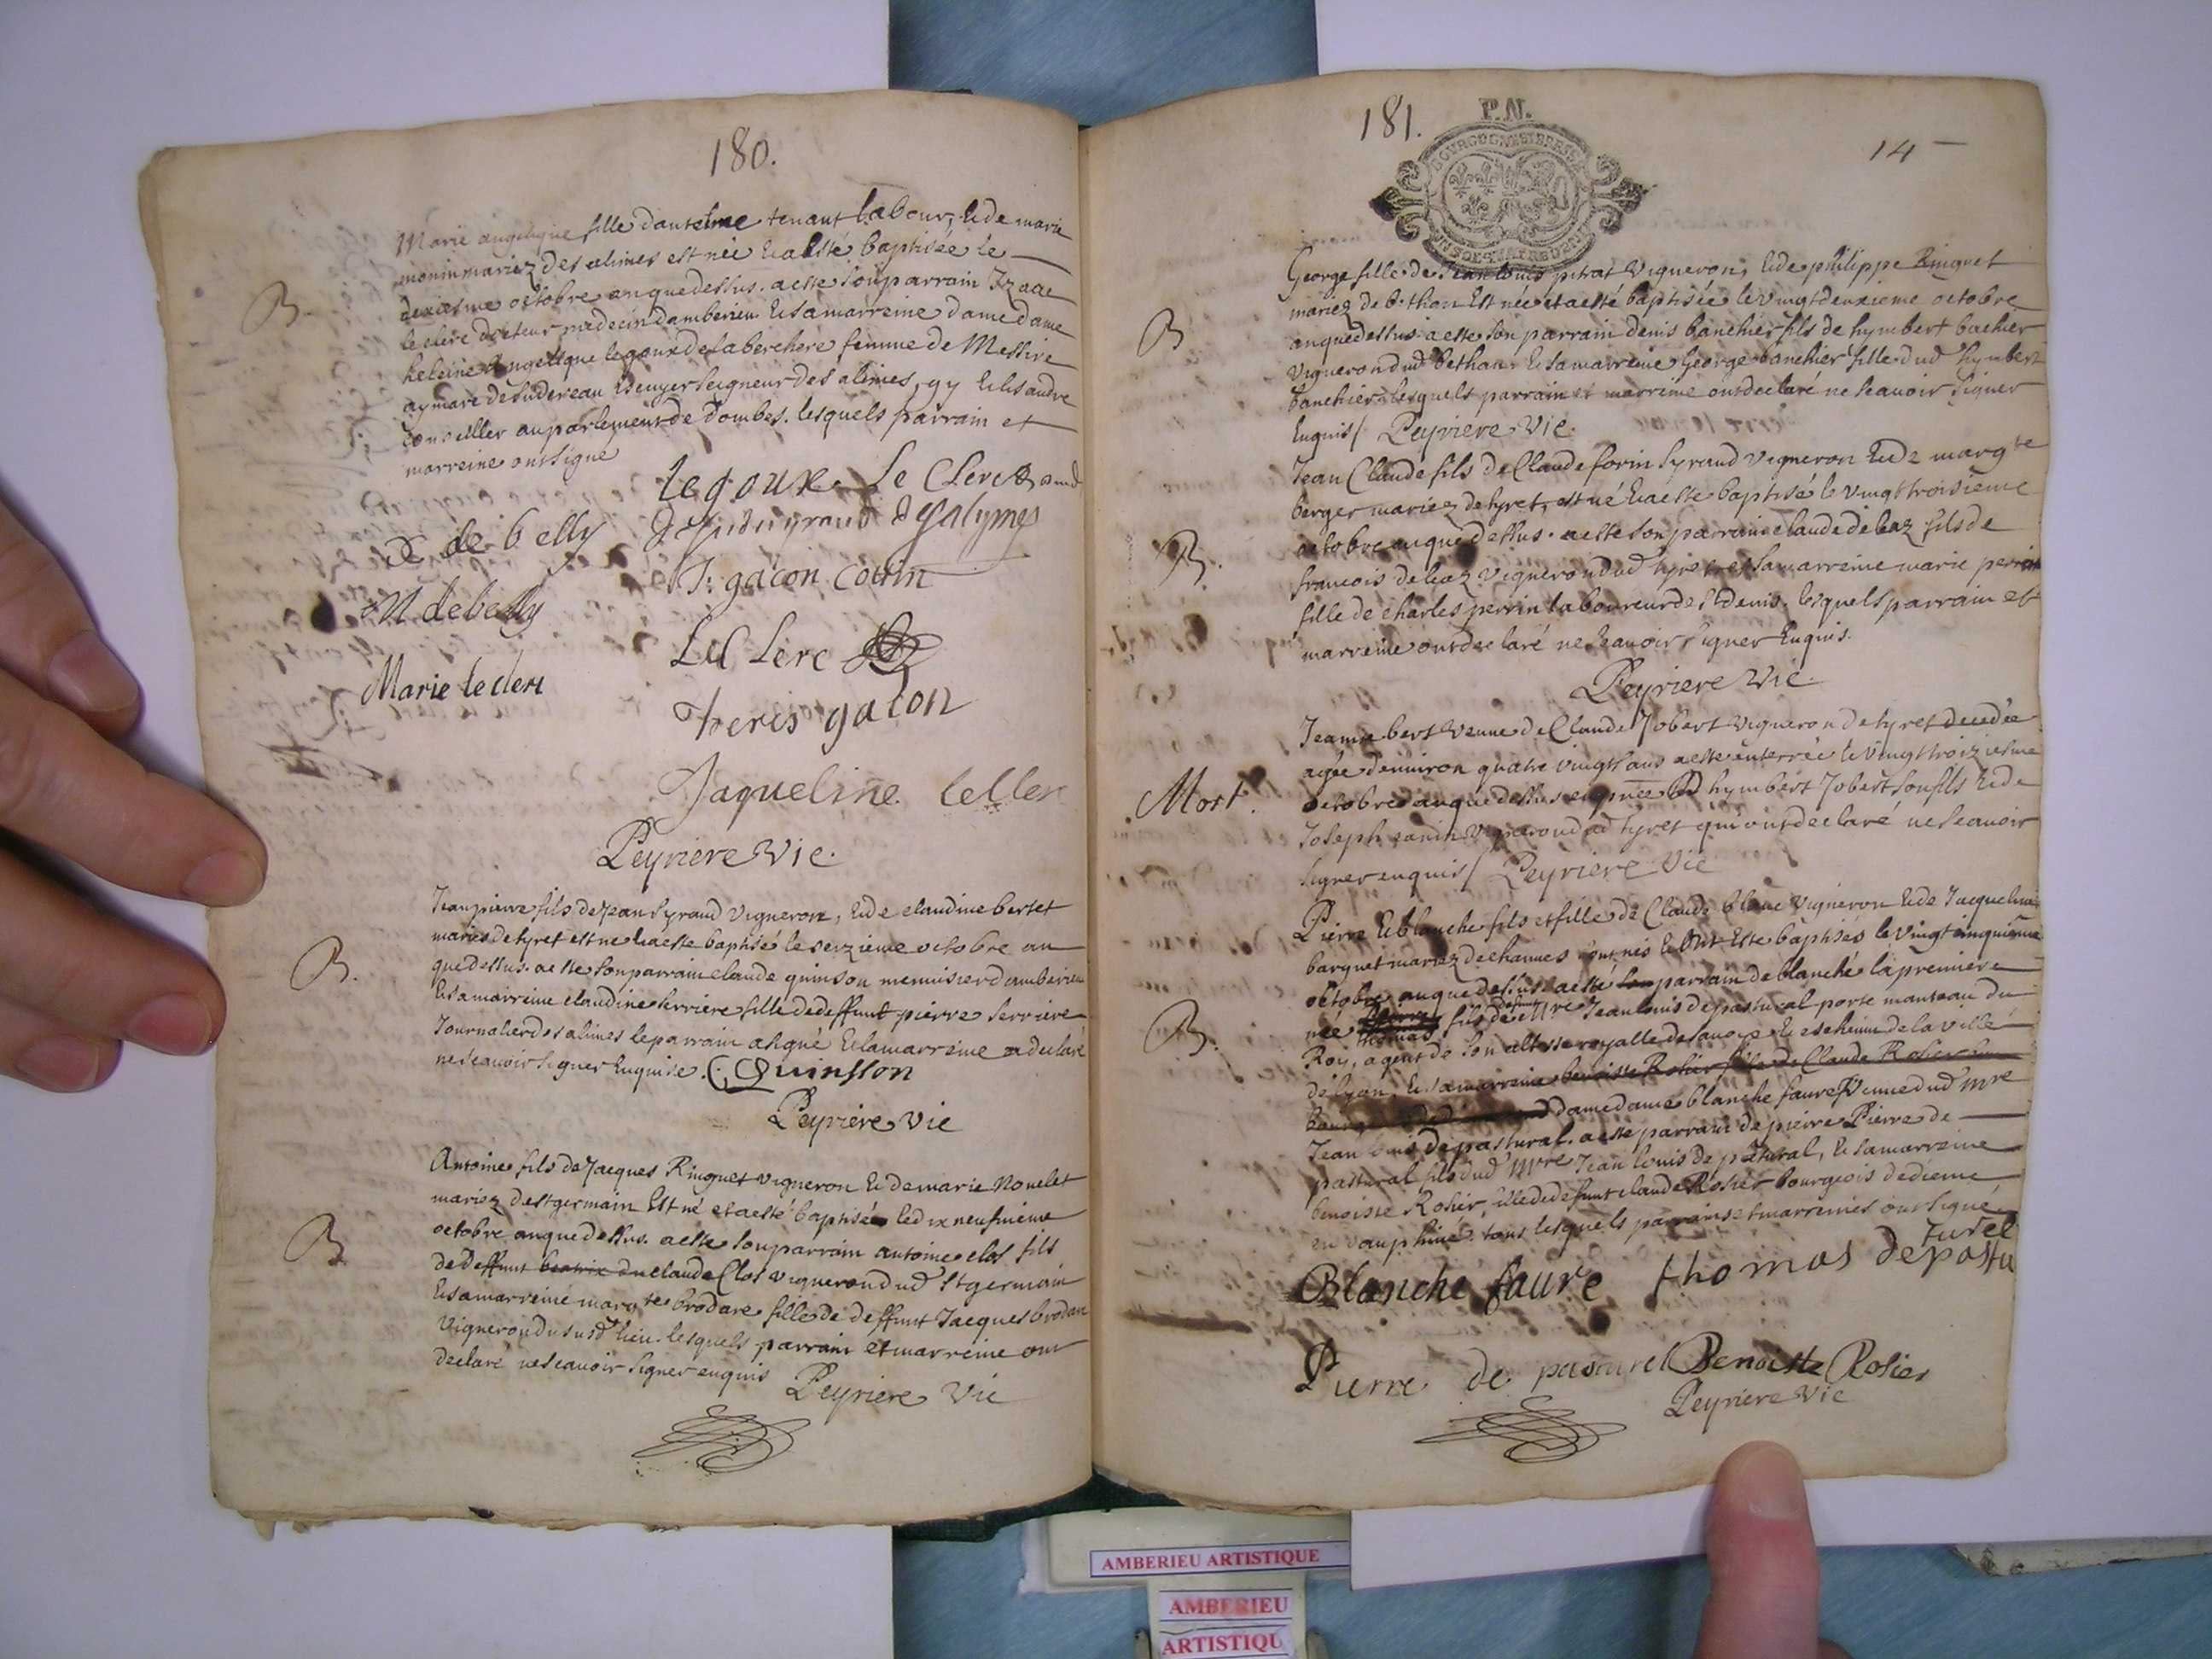 180.
B.
Marie angelique fille dantelme tenant labour, & de marie
monin mariez des alimes est née & a esté baptisée le
dexiesme octobre an que dessus. a este son parrain Izaac
le clerc docteur medecin damberieu & sa marreine dame dame
heleine Angelique legoux de la berchere femme de Messire
aymare de Escuyer seigneur des alimes, gy & lisandre
conseiller au parlement de dombes. lesquels parrain et
marreine ont signé
Legoux. Le Clerc
de belly
desalymes
J. gacon cottin
M debelly
Le Clerc
Marie le clerc
gacon
Jaqueline le Clerc
Peyriere Vic.
B.
Jean pierre fils de Jean Syraud vigneron, & de claudine bertet
mariés de tyret est né & a este baptisé le seizieme octobre an
que dessus. a este son parrain claude quinson menuisier damberieu
& sa marreine claudine serriere fille de deffunt pierre serriere
Journalier des alimes le parrain a signé & la marreine a declaré
ne scavoir signer enquise. C. Quinsson
Peyriere Vic
B
Antoine fils de Jacques Ringuet vigneron & de marie Nouelet
mariez de st germain Est né et a esté baptisé le dix neufvieme
octobre an que dessus. a este son parrain antoine clos fils
de deffunt claude Clos vigneron dud st germain
& sa marreine margte brodare fille de deffunt Jacques brodar
vigneron du susd lieu. lesquels parrain et marreine ont
declaré ne scavoir signer enquis Peyriere Vic
181.
P.N.
14
B
George fille de Jean louis pitat Vigneron, & de philippe Ringuet
mariez de bethan Est née et a esté baptisée le vingt deuxieme octobre
an que dessus a este son parrain denis banchier fils de hymbert bachier
vigneron dud bethan & sa marreine George banchier fille dud hymbert
banchier lesquels parrain et marreine ont declaré ne scavoir signer
Enquis / Peyriere Vic.
B.
Jean Claude fils de Claude forin Syraud vigneron & de margte
berger mariez de tyret, est né & a este baptisé le vingt troisieme
octobre an que dessus. a este son parrain claude deleaz fils de
francois deleaz vigneron dud tyret et sa marreine marie perrin
fille de charles perrin laboureur de st denis. lesquels parrain et
marreine ont declaré ne scavoir signer Enquis.
Peyriere Vic.
Mort.
Jeanne bert veuve de Claude Jobert vigneron de tyret decedée
agée denviron quatre vingts ans a este enterrée le vingt troiziesme
octobre an que dessus en pnce hymbert Jobert son fils & de
Joseph vigneron dud tyret qui ont declaré ne scavoir
signer enquis / Peyriere Vic
B.
Pierre & blanche fils et fille de Claude blanc vigneron & de Jacqueline
barquet mariez de chaunes sont nés & ont Este baptisés le vingt cinquieme
octobre an que dessus. a esté parrain de blanche la premiere
née thomas fils de defunt mre Jean louis de pastural porte manteau du
Roy, agent de son altesse royalle de sauoye & eschevin de la ville
de lyon, & sa marreine benoiste Rosier fille de Claude Rosier
dame dame blanche faure Veuve dud mre
Jean louis de pastural. a este parrain de pierre Pierre de
pastural fils dud mre Jean louis de patural, & sa marreine
benoiste Rosier fille de defunt claude Rosier bourgeois de dieme
en dauphiné. tous lesquels parrains et marreines ont signé.
Blanche faure thomas depastu
turel
Pierre de pasturel Benoiste Rosier
Peyriere Vic
AMBERIEU ARTISTIQUE
AMBERIEU
ARTISTIQU